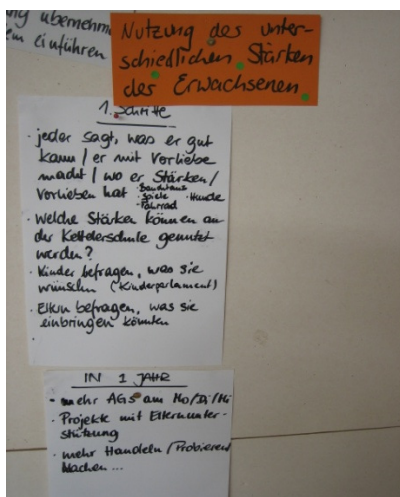 ung übernehm
em einführen
Nutzung des unter-
schiedlichen Stärken
der Erwachsenen
1. Schritte
· jeder sagt, was er gut
kann / er mit Vorliebe
macht / wo er Stärken /
Vorlieben hat · Baumhaus · Spiele · Hunde · Fahrrad
· Welche Stärken können an
der Kettelerschule genutzt
werden?
· Kinder befragen, was sie
wünschen (Kinderparlament)
· Eltern befragen, was sie
einbringen könnten
IN 1 JAHR
· mehr AGs am Mo/Di/Mi
· Projekte mit Elternunter-
stützung
· mehr Handeln / Probieren /
Machen ...